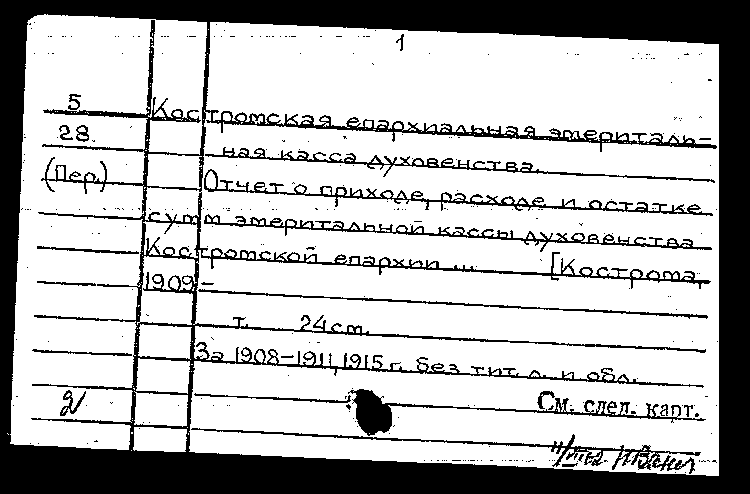 1
5 Костромская епархиальная эмериталь-
28 ная касса духовенства.
(Пер.) Отчет о приходе, расходе и остатке
сумм эмеритальной кассы духовенства
Костромской епархии ... [Кострома,
1909-
т. 24 см.
За 1908-1911, 1915 г. без тит. л. и обл.
2 См. след. карт.